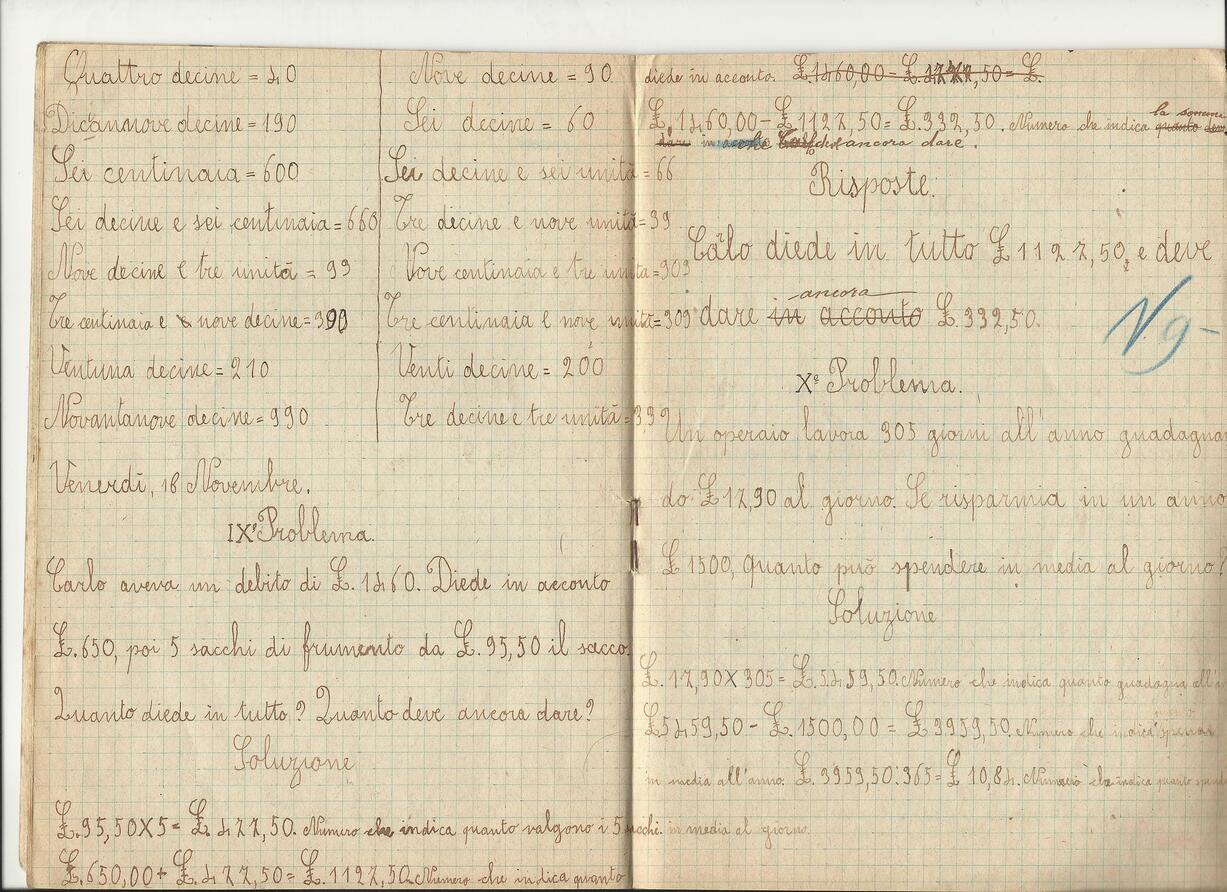 Quattro decine = 40
Dicannove decine = 190
Sei centinaia = 600
Sei decine e sei centinaia = 660
Nove decine e tre unità = 99
Tre centinaia e nove decine = 390
Ventuna decine = 210
Novantanove decine = 990
Nove decine = 90
Sei decine = 60
Sei decine e sei unità = 66
Tre decine e nove unità = 39
Nove centinaia e tre unità = 903
Tre centinaia e nove unità = 309
Venti decine = 200
Tre decine e tre unità = 33
Venerdì, 16 Novembre.
IXº Problema.
Carlo aveva un debito di £. 1460. Diede in acconto
£. 650, poi 5 sacchi di frumento da £. 95,50 il sacco.
Quanto diede in tutto? Quanto deve ancora dare?
Soluzione
£. 95,50 X 5 = £. 477,50. Numero che indica quanto valgono i 5 sacchi.
£. 650,00 + £. 477,50 = £. 1127,50. Numero che indica quanto
diede in acconto. £. 1460,00 - £. ,50 = £.
£. 1460,00 - £. 1127,50 = £. 332,50. Numero che indica quanto la somma
dare in che ancora dare.
Risposte.
Carlo diede in tutto £ 1127,50, e deve
dare in acconto ancora £. 332,50.
V 9-
Xº Problema.
Un operaio lavora 305 giorni all'anno guadagnan
do £ 17,90 al giorno. Se risparmia in un anno
£ 1500, quanto può spendere in media al giorno?
Soluzione
£. 17,90 X 305 = £. 5459,50. Numero che indica quanto guadagna
£ 5459,50 - £. 1500,00 = £ 3959,50. Numero che indica quanto
in media all'anno. £ 3959,50 : 365 = £ 10,84. Numero che indica quanto
in media al giorno.